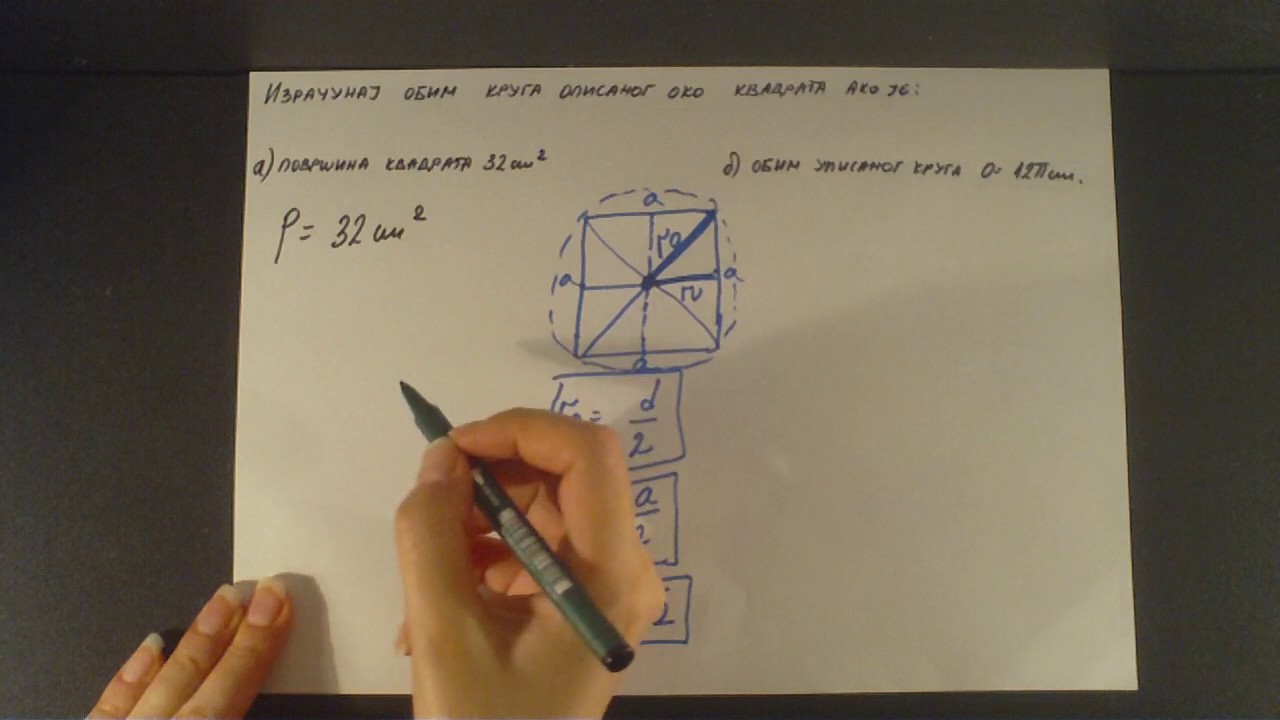 ИЗРАЧУНАЈ ОБИМ КРУГА ОПИСАНОГ ОКО КВАДРАТА АКО ЈЕ:
а) ПОВРШИНА КВАДРАТА 32 cm²
б) ОБИМ УПИСАНОГ КРУГА O = 12π cm.
P = 32 cm²
a
a
a
a
r₀
r
r₀ = d/2
a/2
2